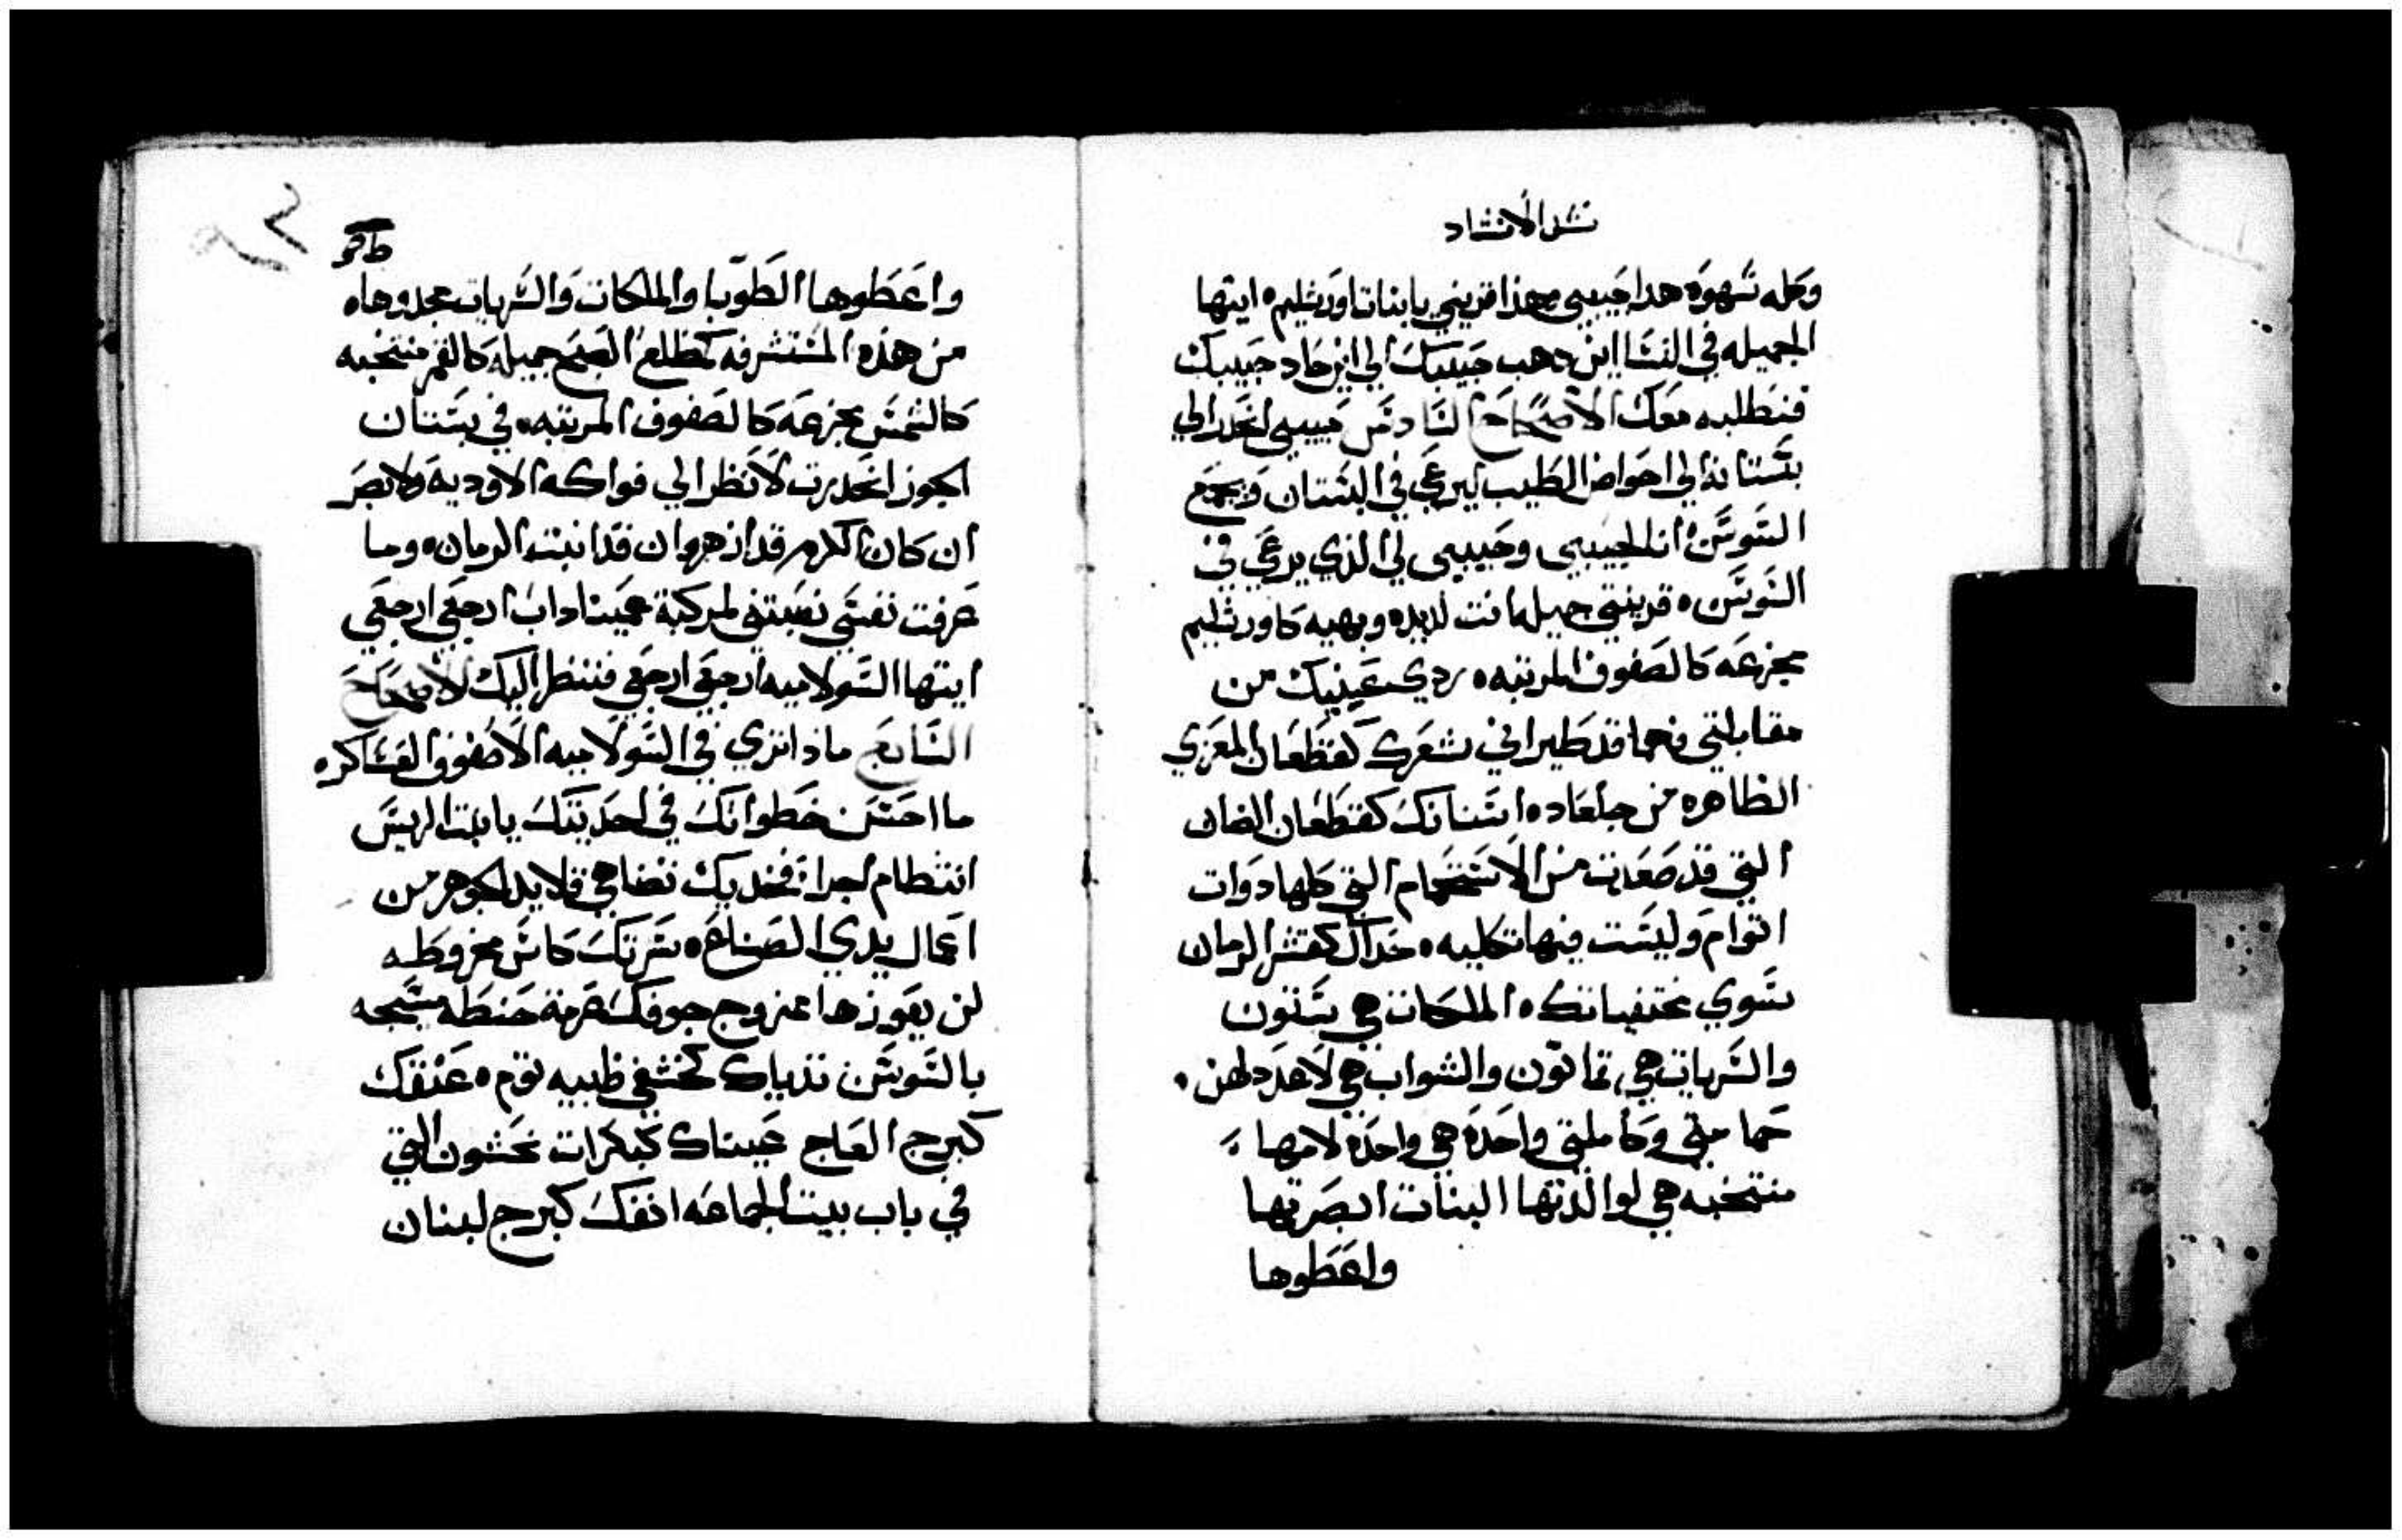 نشيد الانشاد
وكله شهوه هدا حبيبي وهذا قريني يا بنات اورشليم ايتها
الجميله في النسا اين دهب حبيبك الي اين حاد حبيبك
فنطلبه معك الاصحاح السادس حبيبي انحدر الي
بستانه الي احواض الطيب ليرعي في البستان ويجمع
السوسن انا لحبيبي وحبيبي لي الذي يرعي في
السوسن قرينتي جميله انت لديده وبهيه كاورشليم
مجزعه كالصفوف المرتبه ردي عينيك من
مقابلتي فهما قد طيراني شعرك كقطعان المعزي
الظاهره من جلعاد اسنانك كقطعان الضان
التي قد صعدت من الاستحمام التي كلها دوات
اتوام وليست فيها تكليه خداك كقشر الرمان
سوي مختفياتك الملكات هي ستون
والسريات هي تمانون والشواب هي لا عدد لهن
حمامتي وكاملتي واحده هي واحده لامها
منتخبه هي لوالدتها البنات ابصرتها
واعطوها
واعطوها الطوبا والملكات والسريات مجدوها
من هذه المستشرفه كمطلع الصبح جميله كالقمر منتخبه
كالشمس مجزعه كالصفوف المرتبه في بستان
الجوز انحدرت لانظر الي فواكه الاوديه ولابصر
ان كان الكرم قد ازهر وان قد انبت الرمان وما
عرفت نفسي نصبتني لمركبة عميناداب ارجعي ارجعي
ايتها السولاميه ارجعي ارجعي فننظر اليك الاصحاح
السابع ماذا تري في السولاميه الا صفوف العساكر
ما احسن خطواتك في احديتك يا بنت الريس
انتظام اجرا فخديك تضاهي قلايد الجوهر من
اعمال يدي الصناع سرتك كاس مخروطه
لن يعوزها ممزوج جوفك عرمة حنطه مسيجه
بالسوسن تدياك كخشفي ظبيه توم عنقك
كبرج العاج عيناك كبكرات نحشون التي
في باب بيت الجماعه انفك كبرج لبنان